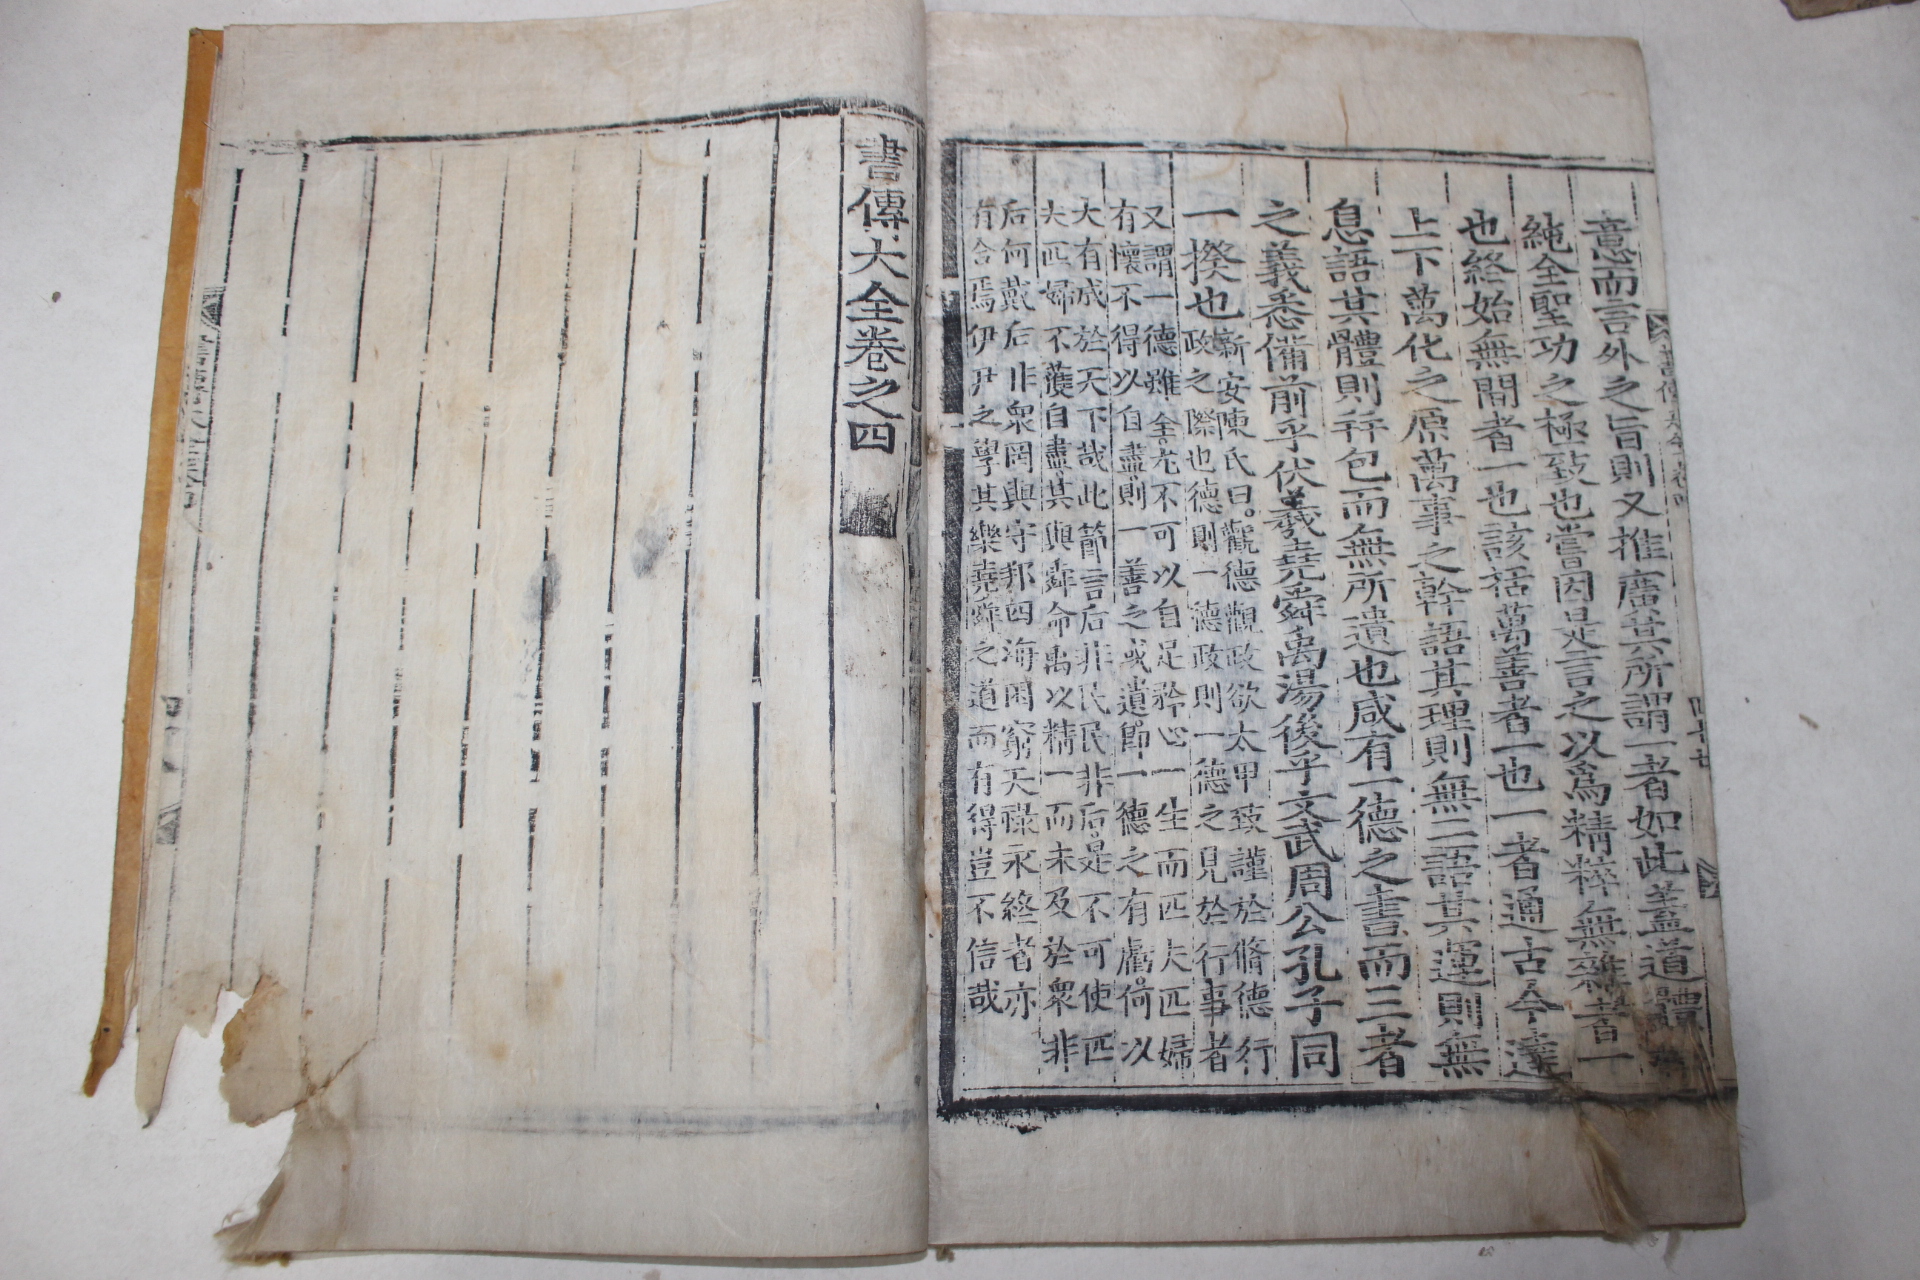 意而言外之旨則又推廣其所謂一者如此蓋道體
純全聖功之極致也嘗因是言之以爲精粹無雜者一
也終始無間者一也該括萬善者一也一者通古今達
上下萬化之原萬事之幹語其理則無二語其運則無
息語其體則幷包而無所遺也咸有一德之書而三者
之義悉備前乎伏羲堯舜禹湯後乎文武周公孔子同
一揆也
新安陳氏曰觀德觀政欲太甲致謹於脩德行
政之際也德則一德政則一德之見於行事者
又謂一德雖全尤不可以自足矜心一生而匹夫匹婦
有懷不得以自盡則一善之或遺卽一德之有虧何以
大有成於天下哉此節言后非民民非后是不可使匹
夫匹婦不獲自盡其與舜命禹以精一而未及於衆非
后何戴后非衆罔與守邦四海困窮天祿永終者亦
有合焉伊尹之學其樂堯舜之道而有得豈不信哉
書傳大全卷之四